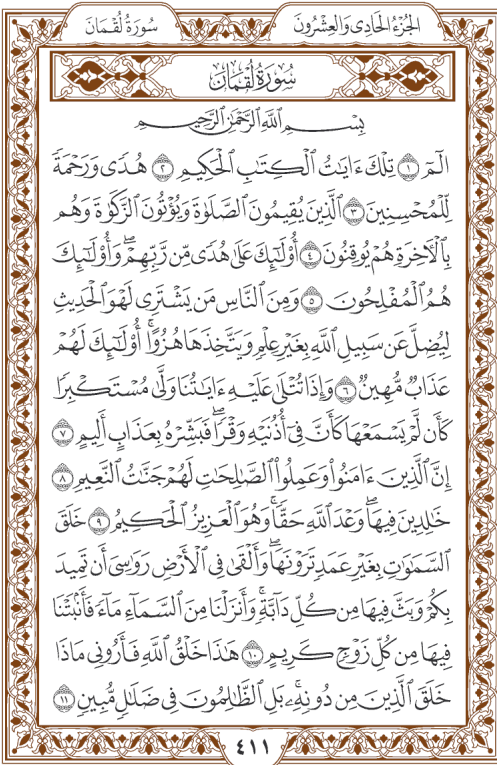 الجُزْءُ الحَادِي وَالعِشْرُونَ
سُورَةُ لُقْمَانَ
سُورَةُ لُقْمَانَ
بِسْمِ ٱللَّهِ ٱلرَّحْمَٰنِ ٱلرَّحِيمِ
الٓمٓ ١ تِلْكَ ءَايَٰتُ ٱلْكِتَٰبِ ٱلْحَكِيمِ ٢ هُدًى وَرَحْمَةً
لِّلْمُحْسِنِينَ ٣ ٱلَّذِينَ يُقِيمُونَ ٱلصَّلَوٰةَ وَيُؤْتُونَ ٱلزَّكَوٰةَ وَهُم
بِٱلْأٓخِرَةِ هُمْ يُوقِنُونَ ٤ أُوْلَٰٓئِكَ عَلَىٰ هُدًى مِّن رَّبِّهِمْۖ وَأُوْلَٰٓئِكَ
هُمُ ٱلْمُفْلِحُونَ ٥ وَمِنَ ٱلنَّاسِ مَن يَشْتَرِى لَهْوَ ٱلْحَدِيثِ
لِيُضِلَّ عَن سَبِيلِ ٱللَّهِ بِغَيْرِ عِلْمٍ وَيَتَّخِذَهَا هُزُوًاۚ أُوْلَٰٓئِكَ لَهُمْ
عَذَابٌ مُّهِينٌ ٦ وَإِذَا تُتْلَىٰ عَلَيْهِ ءَايَٰتُنَا وَلَّىٰ مُسْتَكْبِرًا
كَأَن لَّمْ يَسْمَعْهَا كَأَنَّ فِىٓ أُذُنَيْهِ وَقْرًاۖ فَبَشِّرْهُ بِعَذَابٍ أَلِيمٍ ٧
إِنَّ ٱلَّذِينَ ءَامَنُواْ وَعَمِلُواْ ٱلصَّٰلِحَٰتِ لَهُمْ جَنَّٰتُ ٱلنَّعِيمِ ٨
خَٰلِدِينَ فِيهَاۖ وَعْدَ ٱللَّهِ حَقًّاۚ وَهُوَ ٱلْعَزِيزُ ٱلْحَكِيمُ ٩ خَلَقَ
ٱلسَّمَٰوَٰتِ بِغَيْرِ عَمَدٍ تَرَوْنَهَاۖ وَأَلْقَىٰ فِى ٱلْأَرْضِ رَوَٰسِىَ أَن تَمِيدَ
بِكُمْ وَبَثَّ فِيهَا مِن كُلِّ دَآبَّةٍۚ وَأَنزَلْنَا مِنَ ٱلسَّمَآءِ مَآءً فَأَنۢبَتْنَا
فِيهَا مِن كُلِّ زَوْجٍ كَرِيمٍ ١٠ هَٰذَا خَلْقُ ٱللَّهِ فَأَرُونِى مَاذَا
خَلَقَ ٱلَّذِينَ مِن دُونِهِۦۚ بَلِ ٱلظَّٰلِمُونَ فِى ضَلَٰلٍ مُّبِينٍ ١١
٤١١